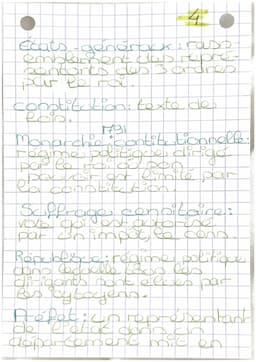 4
États-généraux: rass
emblement des repré-
sentants des 3 ordres
par le roi.
constitution: texte de
lois.
1791
Monarchie contitutionnelle:
régime politique dirigé
par le roi, où son
pouvoir est limité par
la constitution.
Suffrage censitaire:
vote qui est autorisé
par un impôt, le cens.
République: régime politique
dans laquelle tous les
dirigeants sont élues par
les citoyens.
Préfet: un représentant
de l'état dans un
département mit en